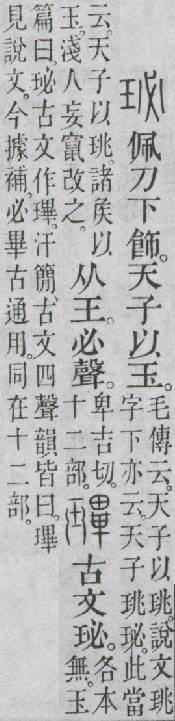 珌佩刀下飾。天子以玉。毛傳云。天子以珧。說文珧
字下亦云。天子珧珌。此當
云。天子以珧。諸矦以
玉。淺人妄竄改之。
从王。必聲。卑吉切。
十二部。
㻫古文珌。各本
無。玉
篇曰。珌古文作㻫。汗簡、古文四聲韻皆曰。㻫
見說文。今據補。必畢古通用。同在十二部。